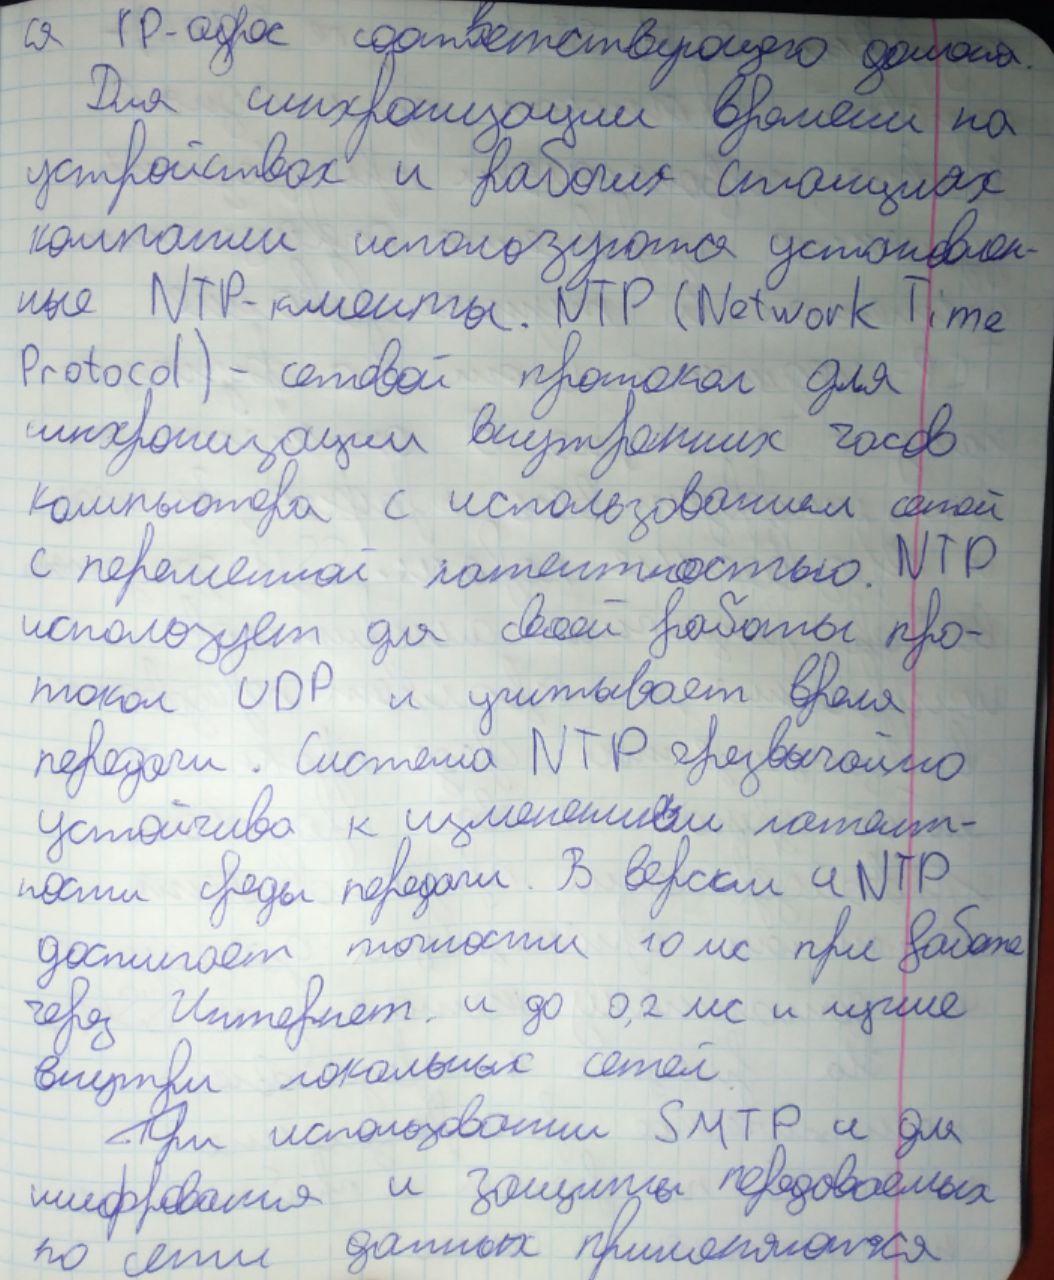 ся IP-адрес соответствующего домена.
Для синхронизации времени на
устройствах и рабочих станциях
компании используются установлен-
ные NTP-клиенты. NTP (Network Time
Protocol) - сетевой протокол для
синхронизации внутренних часов
компьютера с использованием сетей
с переменной латентностью. NTP
использует для своей работы про-
токол UDP и учитывает время
передачи. Система NTP чрезвычайно
устойчива к изменениям латент-
ности среды передачи. В версии 4 NTP
достигает точности 10 мс при работе
через Интернет. и до 0,2 мс и лучше
внутри локальных сетей.
При использовании SMTP и для
шифрования и защиты передаваемых
по сети данных применяются